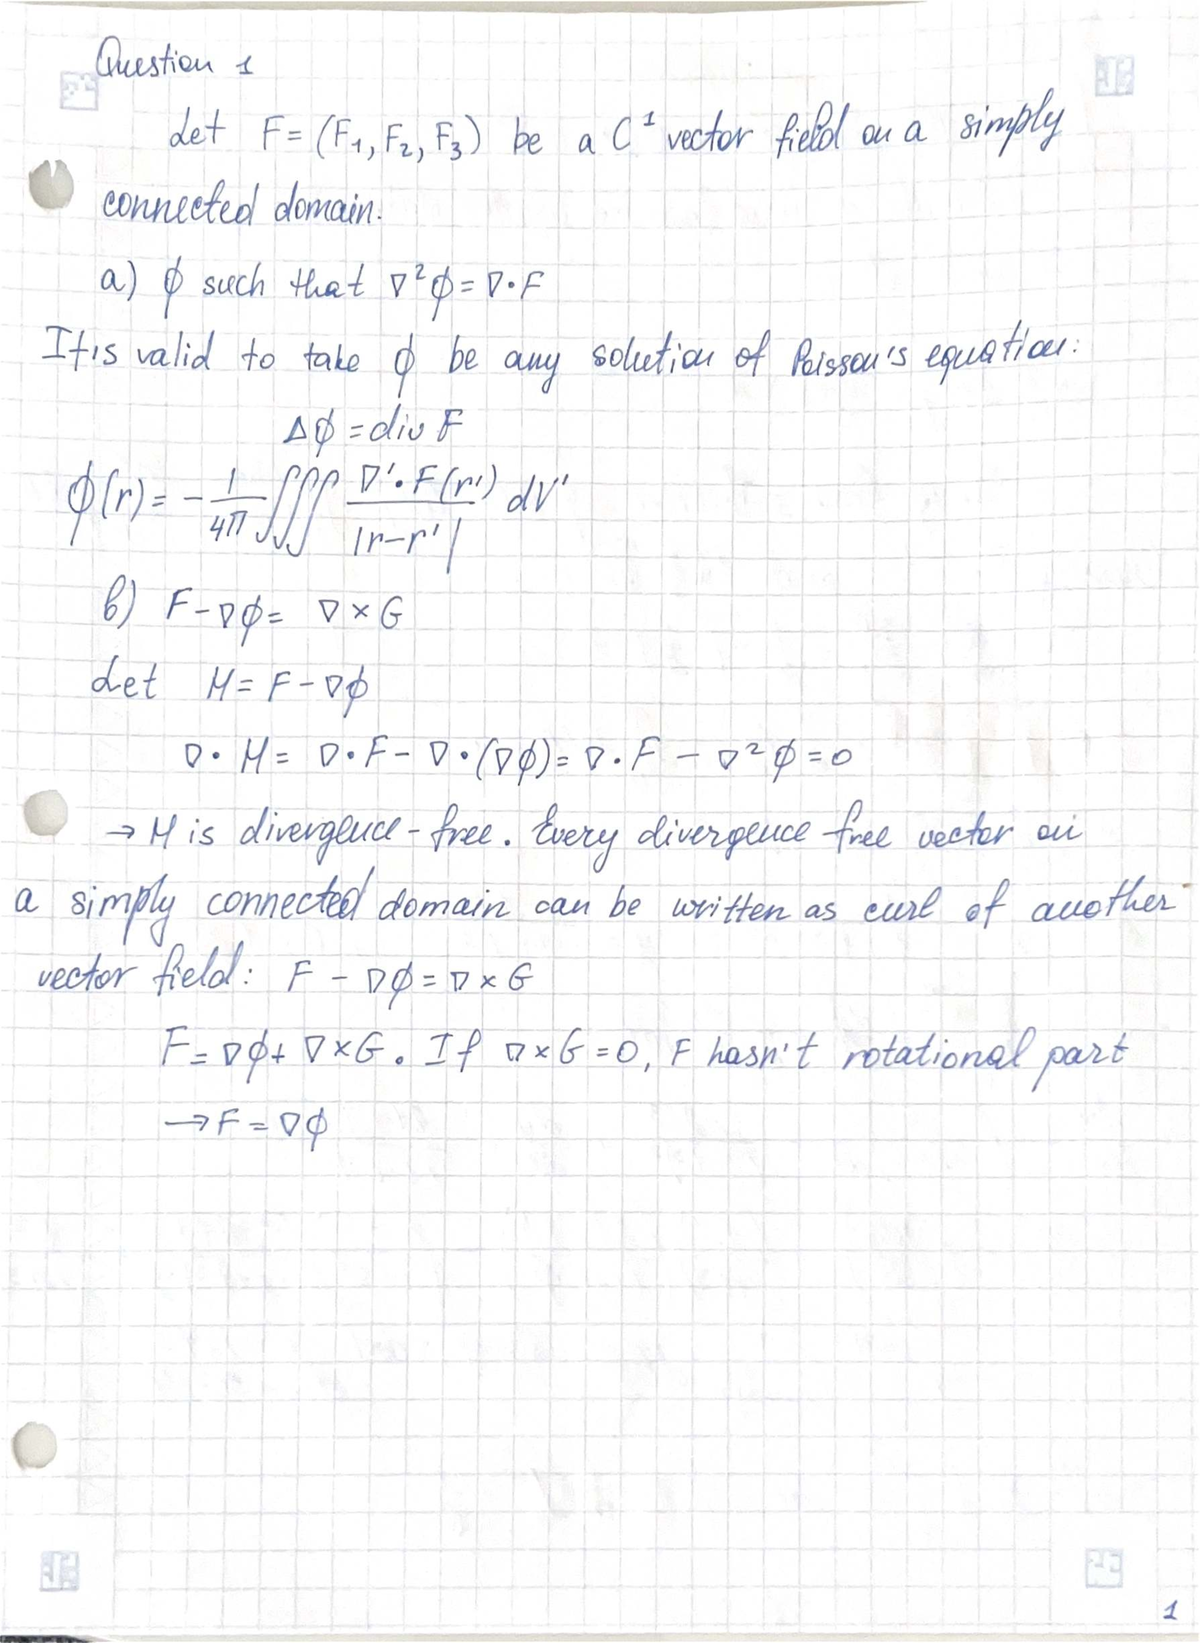 Question 1
Let F = (F₁, F₂, F₃) be a C¹ vector field on a simply
connected domain.
a) ϕ such that ∇²ϕ = ∇·F
It is valid to take ϕ be any solution of Poisson's equation:
Δϕ = div F
ϕ(r) = - 1/4π ∭ ∇'·F(r')/|r-r'| dV'
b) F - ∇ϕ = ∇ × G
Let H = F - ∇ϕ
∇·H = ∇·F - ∇·(∇ϕ) = ∇·F - ∇²ϕ = 0
→ H is divergence-free. Every divergence free vector on
a simply connected domain can be written as curl of another
vector field: F - ∇ϕ = ∇ × G
F = ∇ϕ + ∇ × G. If ∇ × G = 0, F hasn't rotational part
→ F = ∇ϕ
1